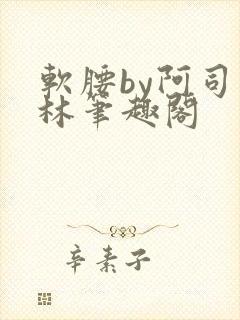 軟腰by阿司
林筆趣閣
辛素子